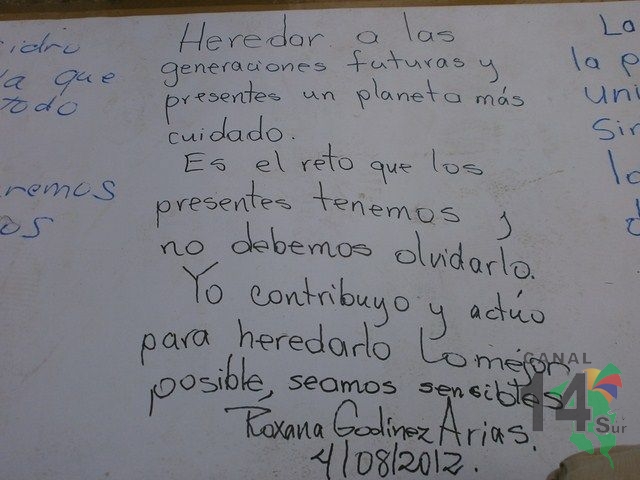 Heredar a las
generaciones futuras y
presentes un planeta más
cuidado.
Es el reto que los
presentes tenemos y
no debemos olvidarlo.
Yo contribuyo y actúo
para heredarlo Lo mejor
posible, seamos sensibles
Roxana Godínez Arias.
4/08/2012.
sidro
a que
todo
aremos
os
La
la p
uni
Sin
lo
CANAL
14
Sur